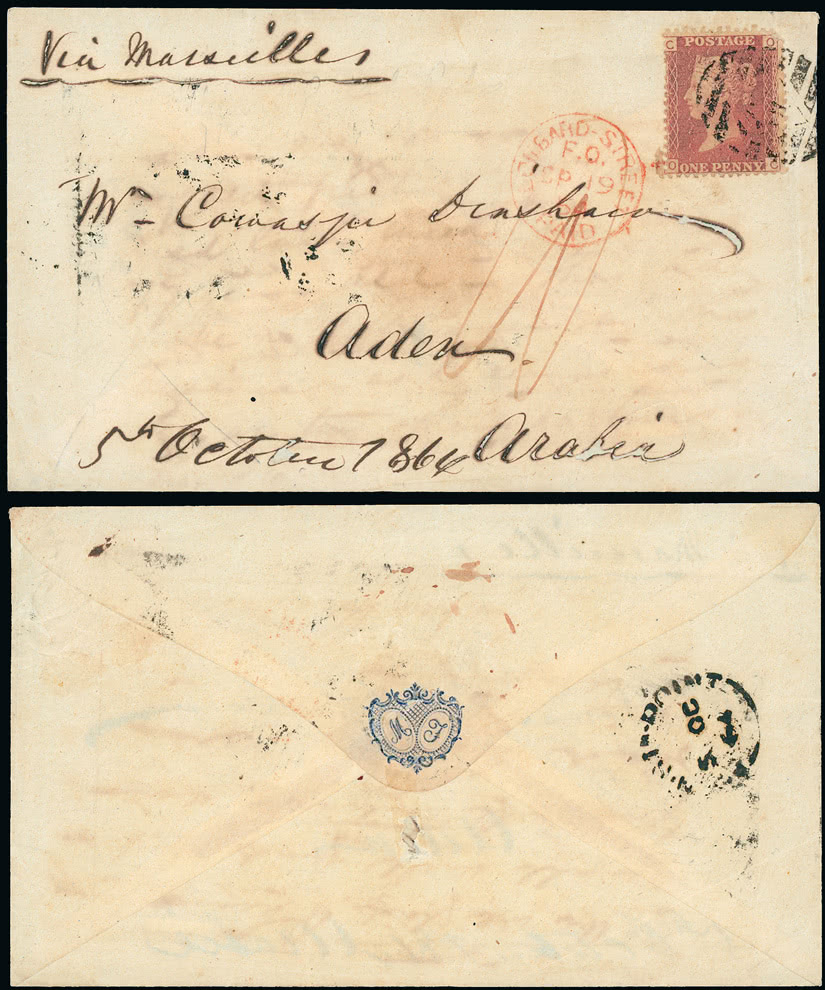 Via Marseilles
POSTAGE
ONE PENNY
O C
C O
LOMBARD-STREET
F.O.
SP 19
PAID
Mr Cowasjee Dinshaw
Aden
5th October 1864 Arabia
POINT
OC
5